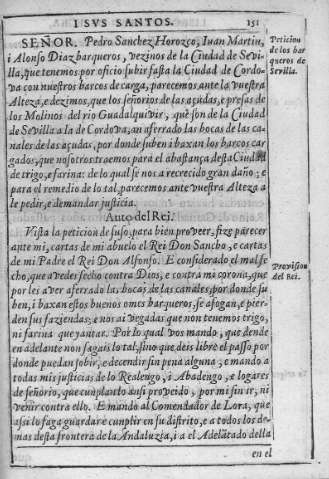 I SVS SANTOS.
151
SEÑOR. Pedro Sanchez Horozco, Iuan Martin,
i Alonso Diaz barqueros, vezinos de la Ciudad de Sevi-
lla, que tenemos por oficio subir fasta la Ciudad de Cordo-
va con nuestros barcos de carga, parecemos ante la vuestra
Alteza, e dezimos, que los señorios de las açudas, e presas de
los Molinos del rio Guadalquivir, que son de la Ciudad
de Sevilla a la de Cordova, an aferrado las bocas de las ca-
nales de las açudas, por donde suben i baxan los barcos car
gados, que nosotros traemos para el abastança desta Ciudad
de trigo, e farina: de lo qual se nos a recrecido gran daño; e
para el remedio de lo tal, parecemos ante vuestra Alteza a
le pedir, e demandar justicia.
Peticion
de los bar
queros de
Sevilla.
Auto del Rei.
Vista la peticion de suso, para bien proveer, fize parecer
ante mi, cartas de mi abuelo el Rei Don Sancho, e cartas
de mi Padre el Rei Don Alfonso. E considerado el mal fe
cho, que avedes fecho contra Dios, e contra mi corona, que
por les aver aferrado las bocas de las canales, por donde su
ben, i baxan estos buenos omes barqueros, se afogan, e pier-
den sus faziendas; e nos ai vegadas que non tenemos trigo,
ni farina que yantar. Por lo qual vos mando, que dende
en adelante non fagais lo tal, sino que deis libre el passo por
donde puedan sobir, e decendir sin pena alguna, e mando a
todas mis justicias de lo Realengo, i Abadengo, e logares
de señorio, que cumplan lo ansi proveido, por mi sin ir, ni
venir contra ello. E mando al Comendador de Lora, que
assi lo faga guardar e cumplir en su distrito, e a todos los de-
mas desta frontera de la Andaluzia, i a el Adelãtado della
Provision
del Rei.
en el